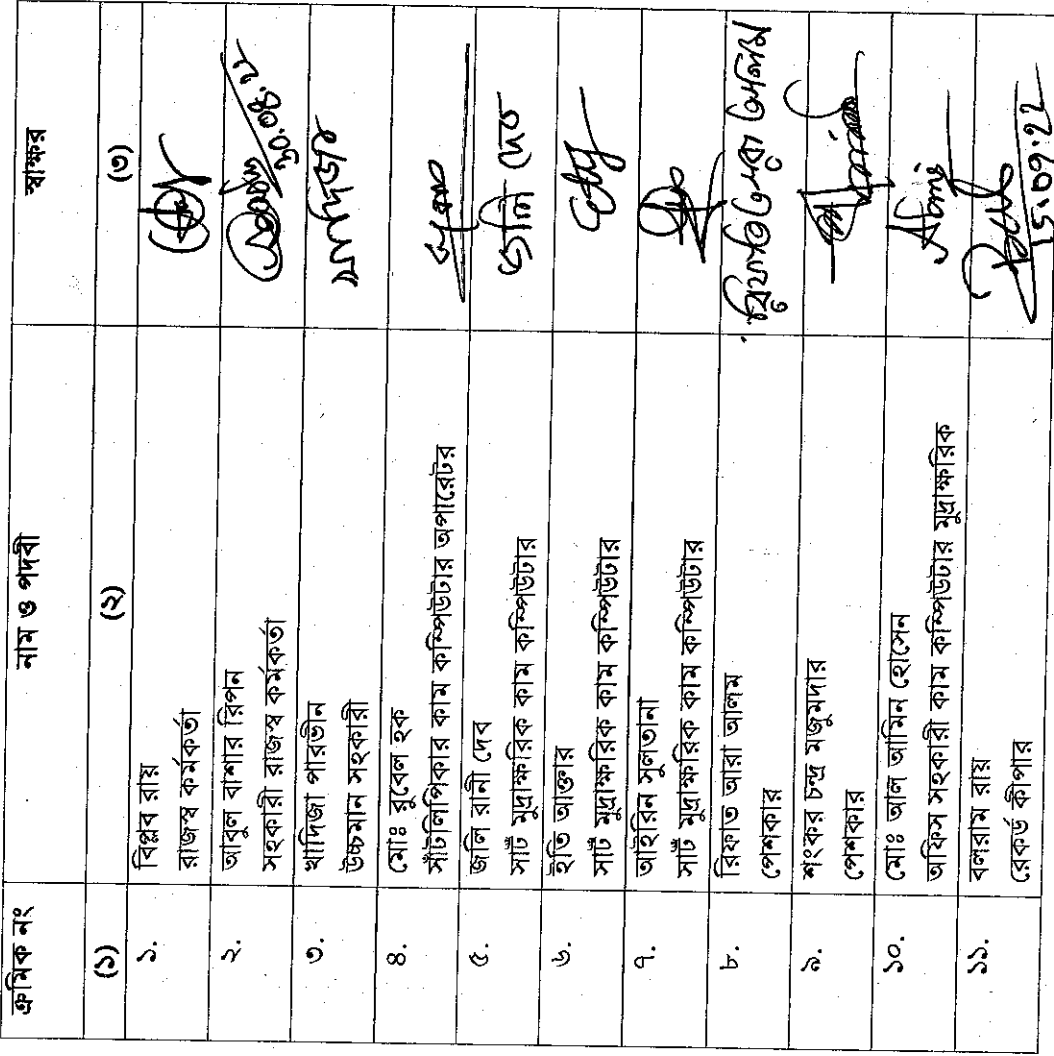 ক্রমিক নং নাম ও পদবী স্বাক্ষর
(১) (২) (৩)
১. বিপ্লব রায়
রাজস্ব কর্মকর্তা
২. আবুল বাশার রিপন
সহকারী রাজস্ব কর্মকর্তা
৩. খাদিজা পারভীন খাদিজা
উচ্চমান সহকারী
৪. মোঃ রুবেল হক
সাঁটলিপিকার কাম কম্পিউটার অপারেটর
৫. জলি রানী দেব জলি দেব
সাট মুদ্রাক্ষরিক কাম কম্পিউটার
৬. ইতি আক্তার
সাট মুদ্রাক্ষরিক কাম কম্পিউটার
৭. আইরিন সুলতানা
সাট মুদ্রাক্ষরিক কাম কম্পিউটার
৮. রিফাত আরা আলম
পেশকার
৯. শংকর চন্দ্র মজুমদার
পেশকার
১০. মোঃ আল আমিন হোসেন
অফিস সহকারী কাম কম্পিউটার মুদ্রাক্ষরিক
১১. বলরাম রায়
রেকর্ড কীপার 15.09.22